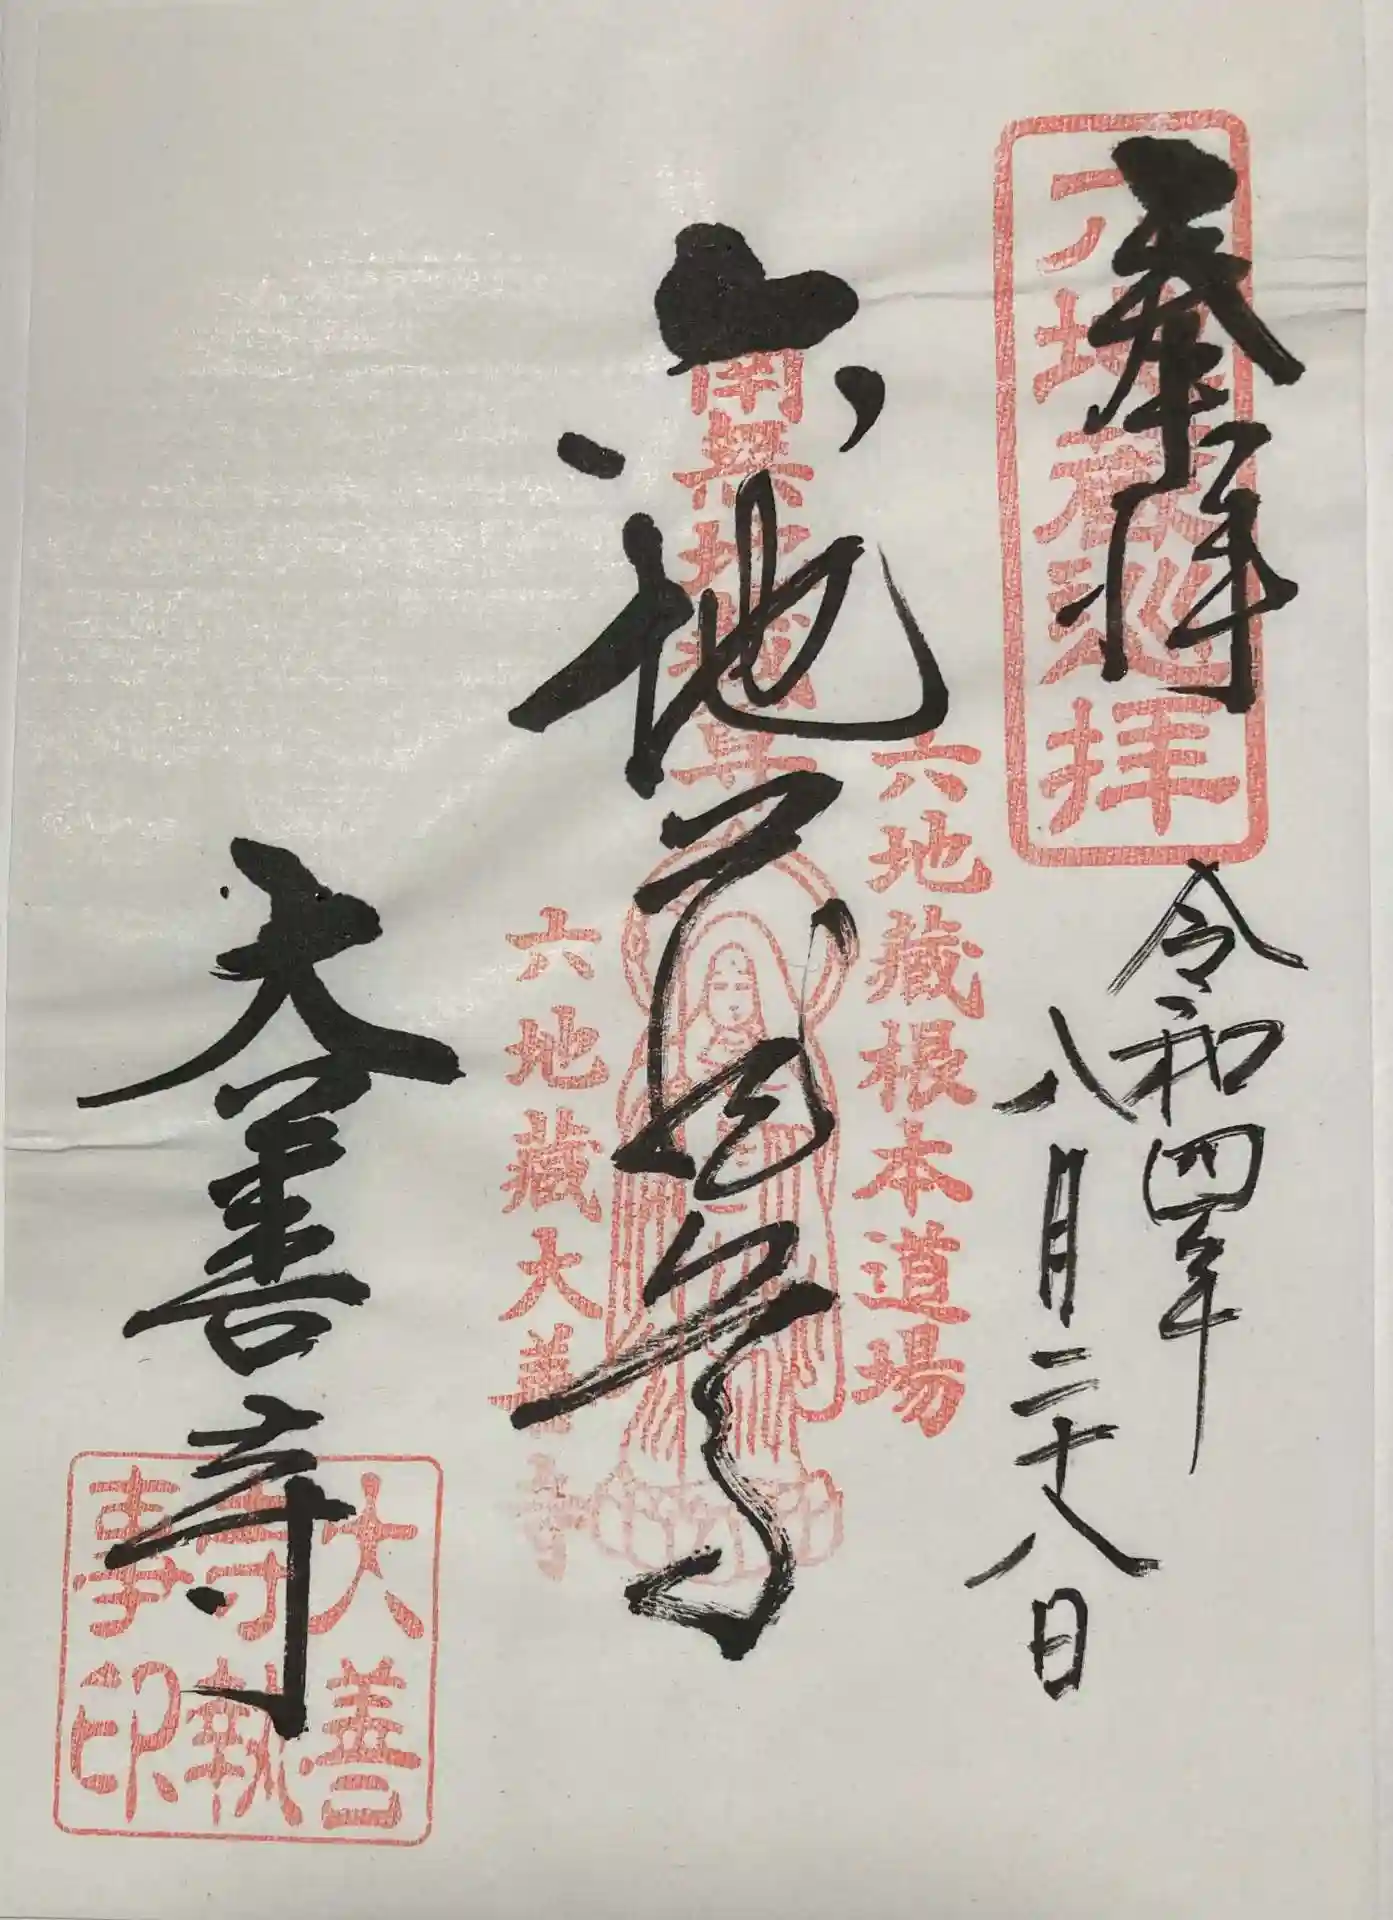 奉拝
六地蔵巡拝
令和四年
八月二十八日
六地蔵尊
南無地蔵尊
六地蔵根本道場
六地蔵大善寺
大善寺
大善寺執事印